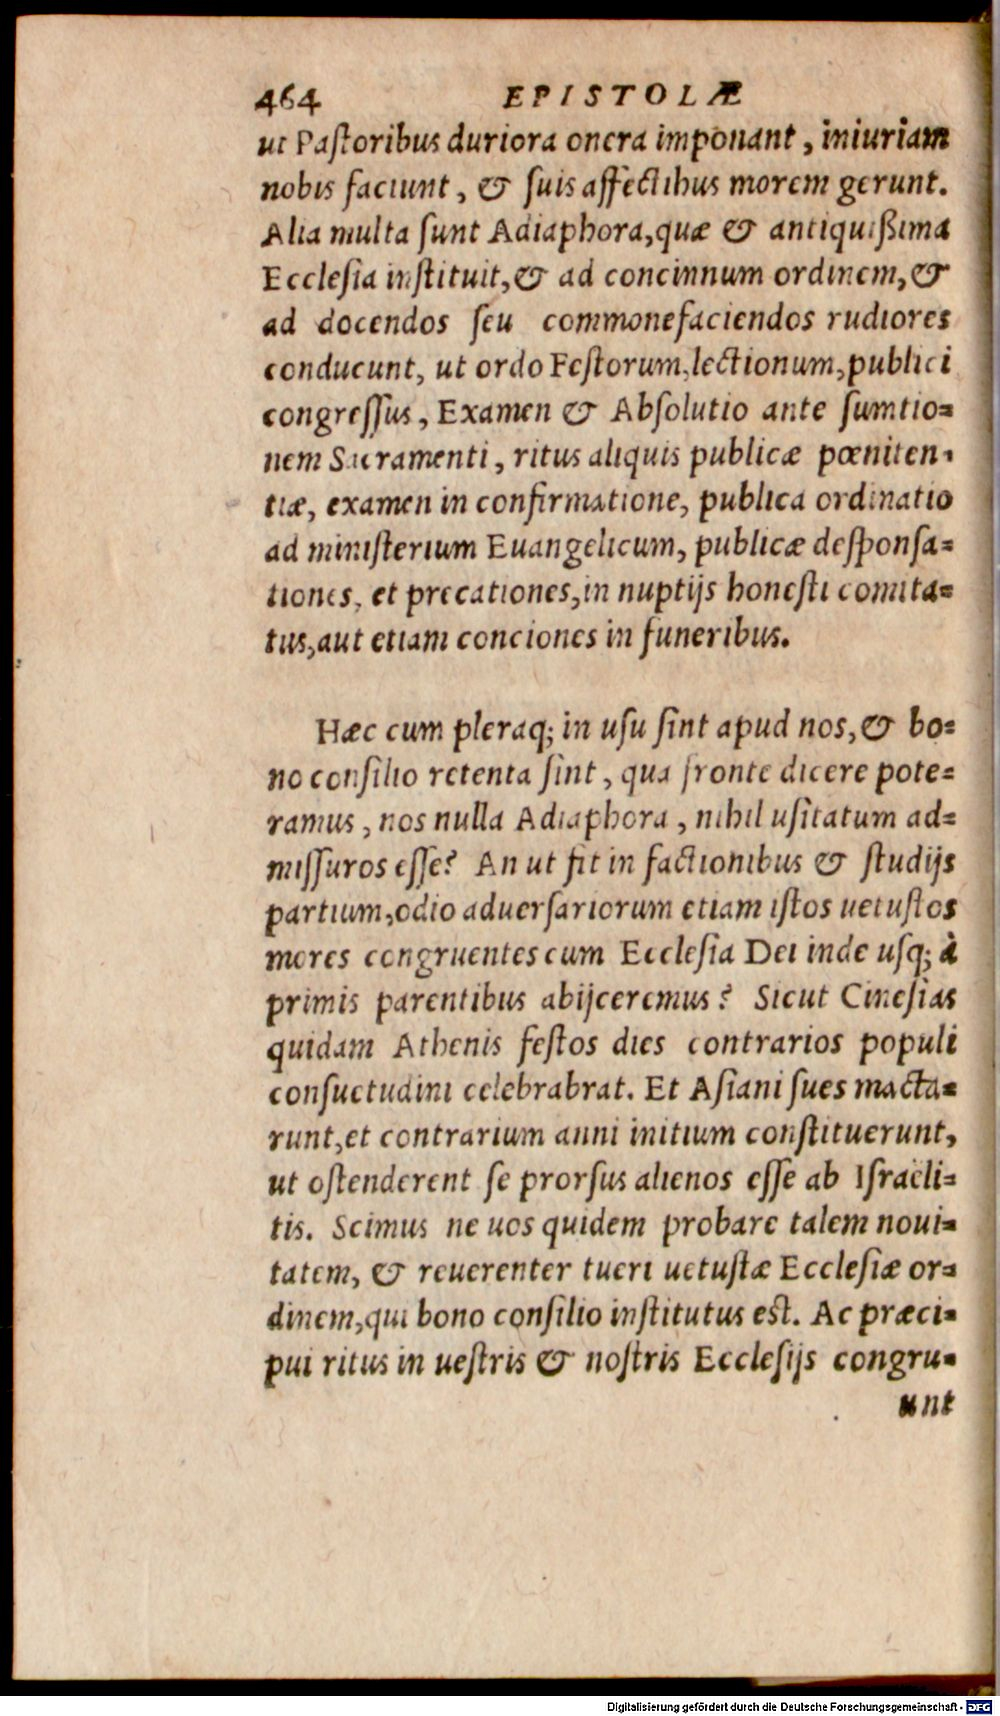 464 EPISTOLÆ
ut Paſtoribus duriora onera imponant, iniuriam
nobis faciunt, & ſuis affectibus morem gerunt.
Alia multa ſunt Adiaphora, quæ & antiquißima
Eccleſia inſtituit, & ad concinnum ordinem, &
ad docendos ſeu commonefaciendos rudiores
conducunt, ut ordo Feſtorum, lectionum, publici
congreſſus, Examen & Abſolutio ante ſumtio=
nem Sacramenti, ritus aliquis publicæ pœniten=
tiæ, examen in confirmatione, publica ordinatio
ad miniſterium Euangelicum, publicæ deſponſa=
tiones, et precationes, in nuptijs honeſti comita=
tus, aut etiam conciones in funeribus.
Hæc cum pleraq; in uſu ſint apud nos, & bo=
no conſilio retenta ſint, qua fronte dicere pote=
ramus, nos nulla Adiaphora, nihil uſitatum ad=
miſſuros eſſe? An ut fit in factionibus & ſtudijs
partium, odio aduerſariorum etiam iſtos uetuſtos
mores congruentes cum Eccleſia Dei inde uſq; à
primis parentibus abijceremus? Sicut Cineſias
quidam Athenis feſtos dies contrarios populi
conſuetudini celebrabrat. Et Aſiani ſues macta=
runt, et contrarium anni initium conſtituerunt,
ut oſtenderent ſe prorſus alienos eſſe ab Iſraëli=
tis. Scimus ne uos quidem probare talem noui=
tatem, & reuerenter tueri uetuſtæ Eccleſiæ or=
dinem, qui bono conſilio inſtitutus eſt. Ac præci=
pui ritus in ueſtris & noſtris Eccleſijs congru=
unt
Digitalisierung gefördert durch die Deutsche Forschungsgemeinschaft - DFG